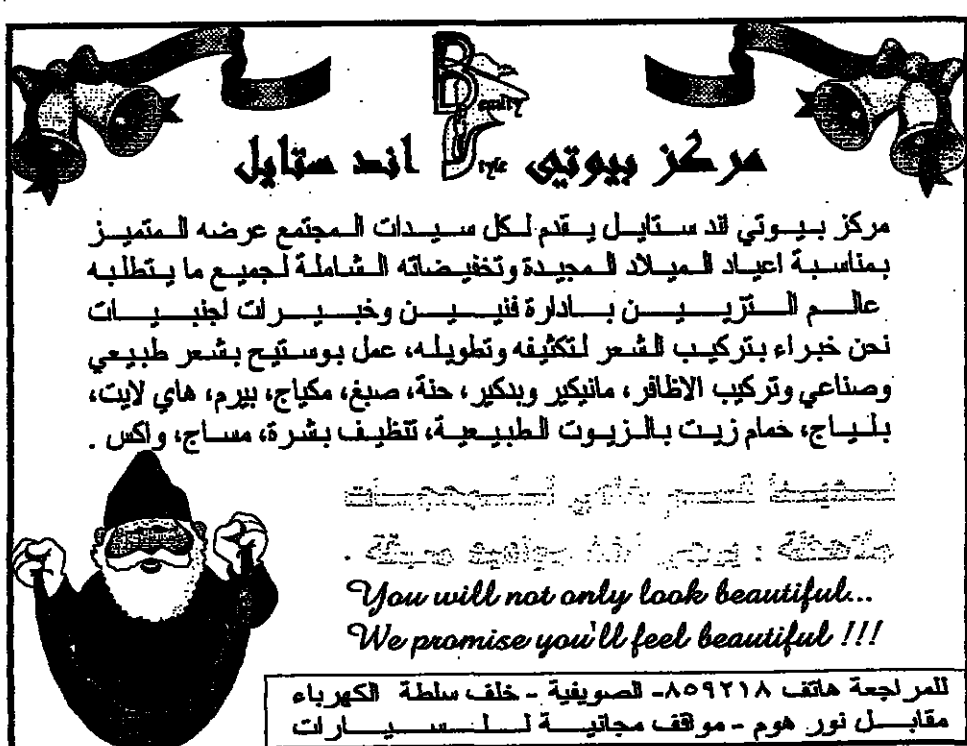 Beauty
Style
مركز بيوتي اند ستايل
مركز بيوتي اند ستايل يقدم لكل سيدات المجتمع عرضه المتميز
بمناسبة اعياد الميلاد المجيدة وتخفيضاته الشاملة لجميع ما يتطلبه
عالم التزيين بادارة فنيين وخبيرات اجنبيات
نحن خبراء بتركيب الشعر لتكثيفه وتطويله، عمل بوستيج بشعر طبيعي
وصناعي وتركيب الاظافر، مانيكير وبدكير، حنة، صبغ، مكياج، بيرم، هاي لايت،
بلياج، حمام زيت بالزيوت الطبيعية، تنظيف بشرة، مساج، واكس .
لدينا قسم خاص للمحجبات
ملاحظة : يرجى اخذ مواعيد مسبقة .
You will not only look beautiful...
We promise you'll feel beautiful !!!
للمراجعة هاتف ٨٥٩٢١٨- الصويفية - خلف سلطة الكهرباء
مقابل نور هوم - مواقف مجانية للسيارات